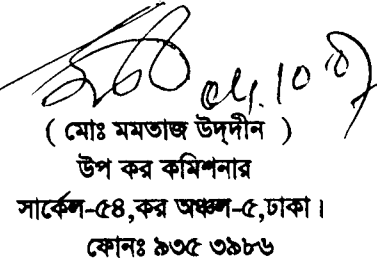 ( মোঃ মমতাজ উদ্‌দীন )
উপ কর কমিশনার
সার্কেল-৫৪,কর অঞ্চল-৫,ঢাকা।
ফোনঃ ৯৩৫ ৩৯৮৬